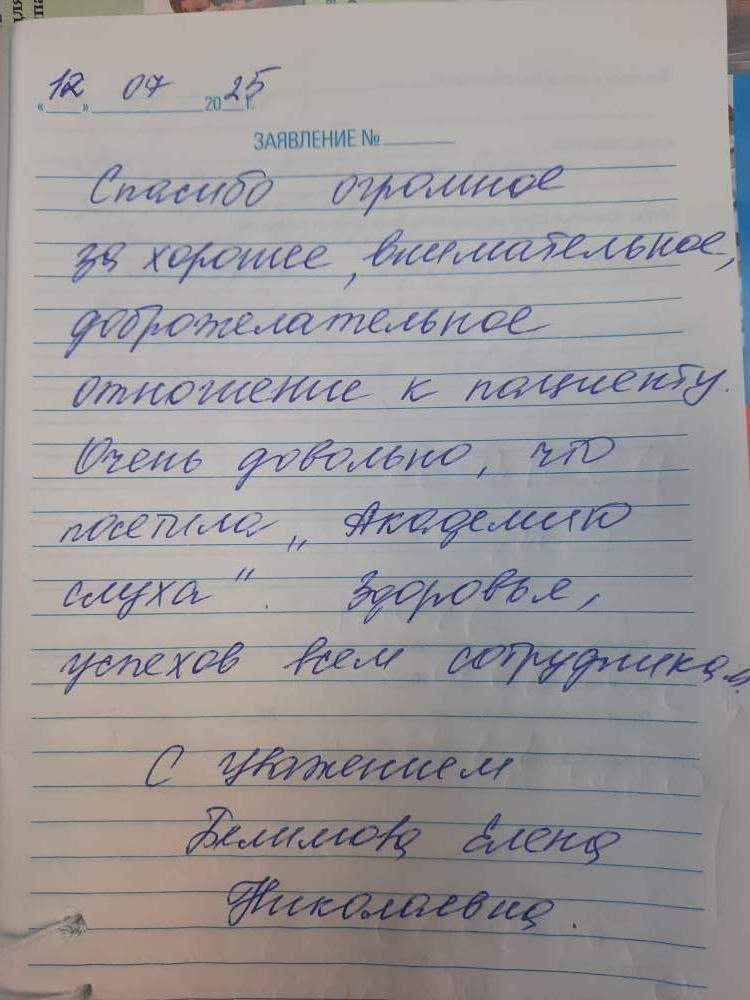 «12» 07 2025г.
ЗАЯВЛЕНИЕ №
Спасибо огромное
за хорошее, внимательное,
доброжелательное
отношение к пациенту.
Очень довольна, что
посетила „Академию
слуха". Здоровья,
успехов всем сотрудникам.
С уважением
Белимова Елена
Николаевна.